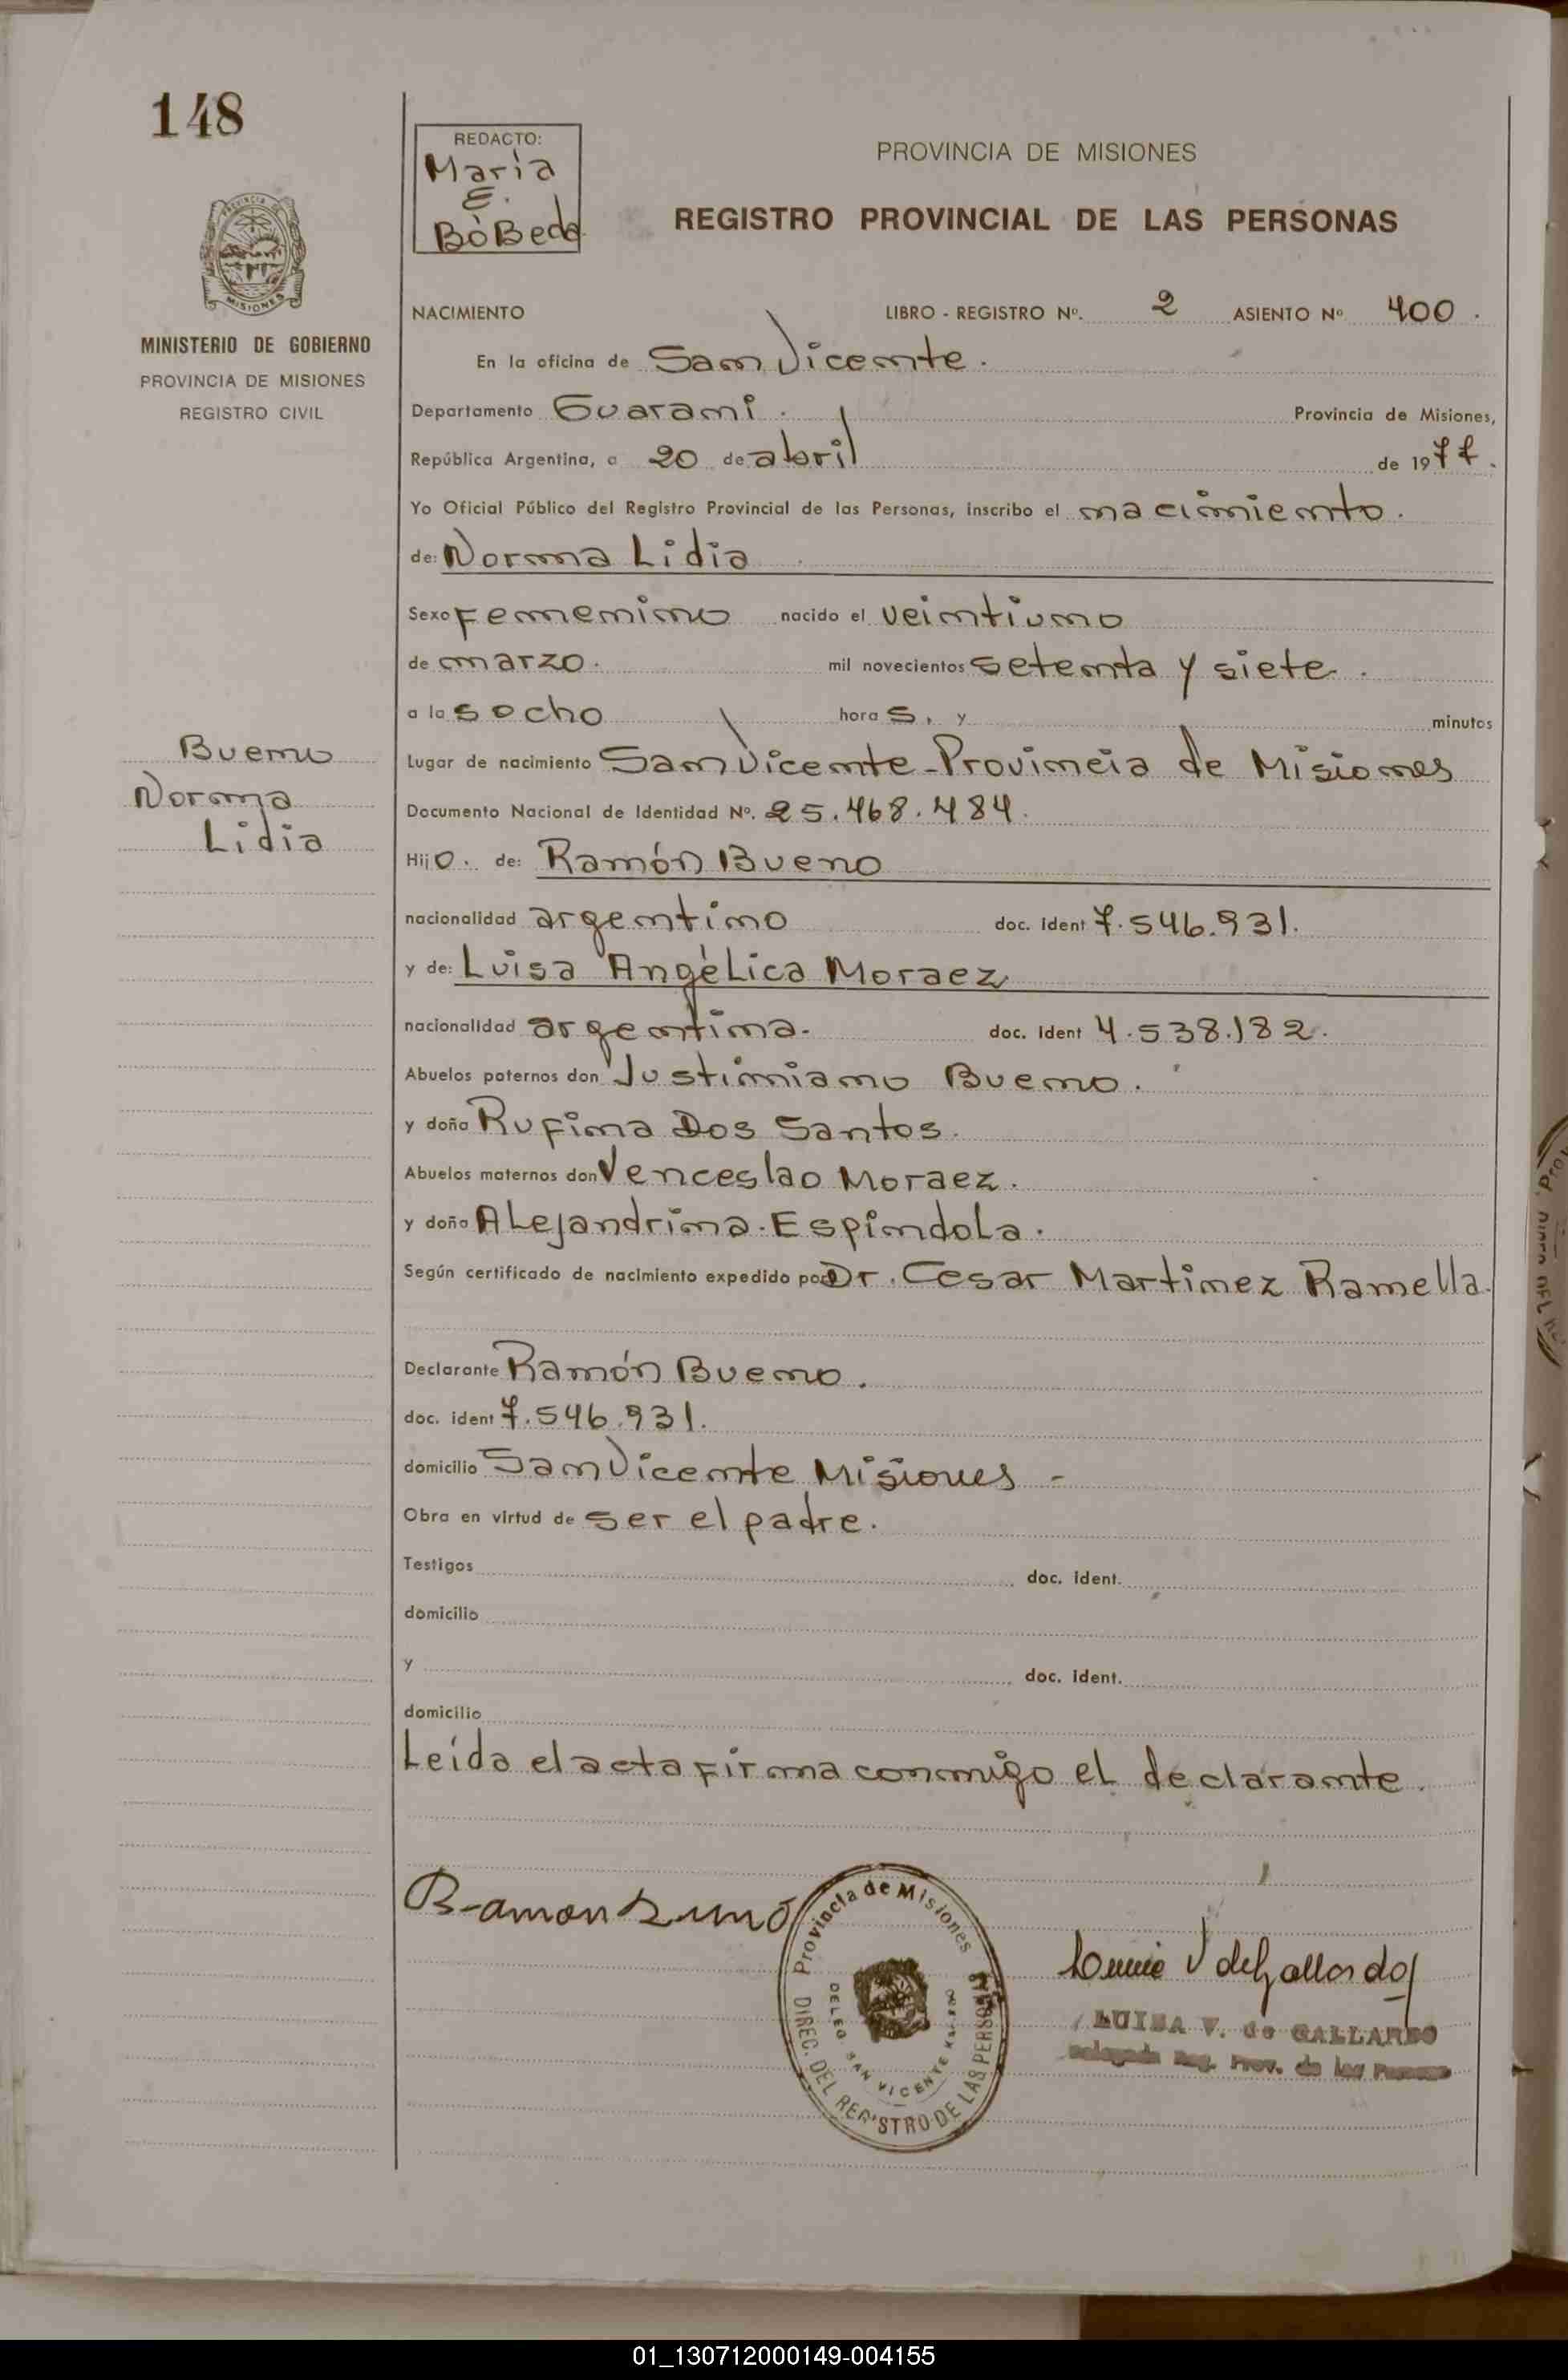 148
REDACTO:
María
E.
BòBeda
PROVINCIA DE MISIONES
REGISTRO PROVINCIAL DE LAS PERSONAS
PROVINCIA DE
MISIONES
MINISTERIO DE GOBIERNO
PROVINCIA DE MISIONES
REGISTRO CIVIL
NACIMIENTO LIBRO - REGISTRO Nº. 2 ASIENTO Nº 400.
En la oficina de San Vicente.
Departamento Guarani. Provincia de Misiones,
República Argentina, a 20 de abril de 1977.
Yo Oficial Público del Registro Provincial de las Personas, inscribo el nacimiento.
de: Norma Lidia
Sexo femenino nacido el veintiuno
de marzo. mil novecientos setenta y siete.
a las ocho horas, y minutos
Bueno
Norma
Lidia
Lugar de nacimiento San Vicente - Provincia de Misiones
Documento Nacional de Identidad Nº. 25.468.484.
Hijo. de: Ramón Bueno
nacionalidad argentino doc. ident 7.546.931.
y de: Luisa Angèlica Moraez
nacionalidad argentina. doc. ident 4.538.182.
Abuelos paternos don Justiniano Bueno.
y doña Rufina Dos Santos.
Abuelos maternos don Venceslao Moraez.
y doña Alejandrina. Espindola.
Según certificado de nacimiento expedido por Dr. Cesar Martinez Ramella.
Declarante Ramón Bueno.
doc. ident 7.546.931.
domicilio San Vicente Misiones -
Obra en virtud de ser el padre.
Testigos doc. ident.
domicilio
y doc. ident.
domicilio
Leída el acta firma conmigo el declarante.
Ramon Bueno
Provincia de Misiones
DIREC. DEL REGISTRO DE LAS PERSONAS
DELEG. SAN VICENTE
V de Gallardo
LUISA V. de GALLARDO
Delegada Reg. Prov. de las Personas
01_130712000149-004155